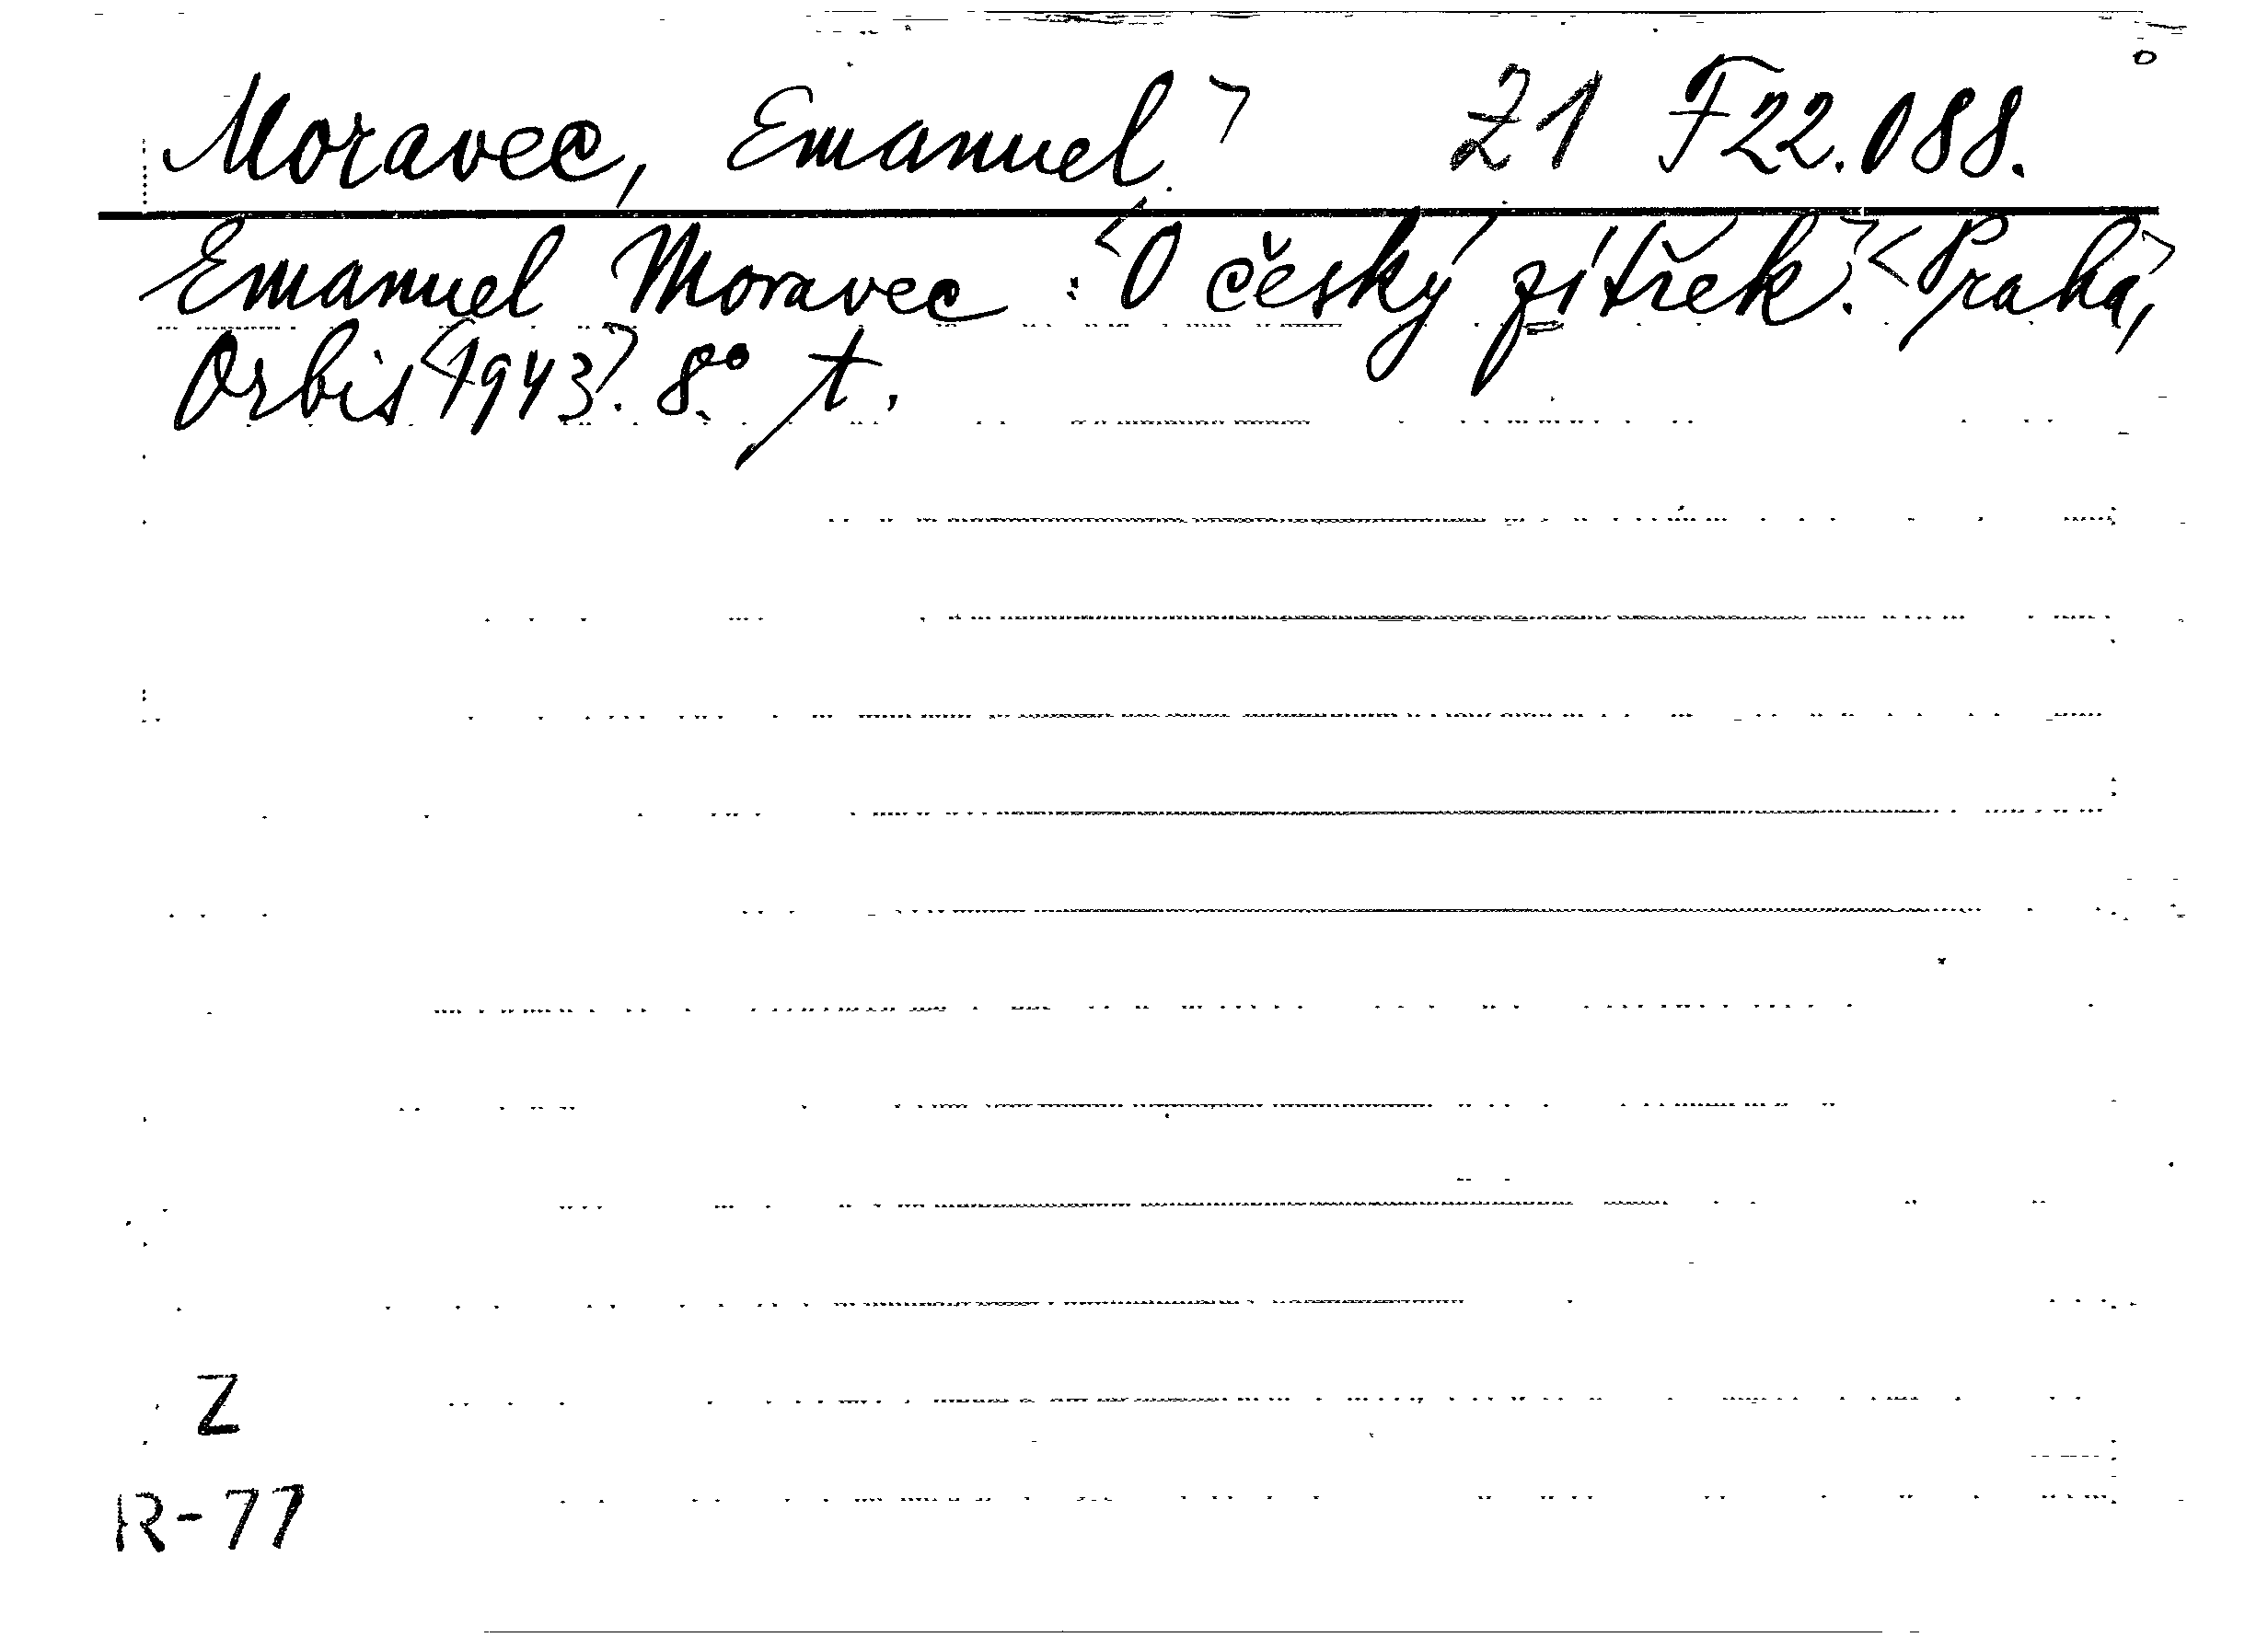 Moravec, Emanuel. Z1 F22.088.
Emanuel Moravec : <O český zítřek.> <Praha,>
Orbis <1943>. 8.° t.
Z
R-77